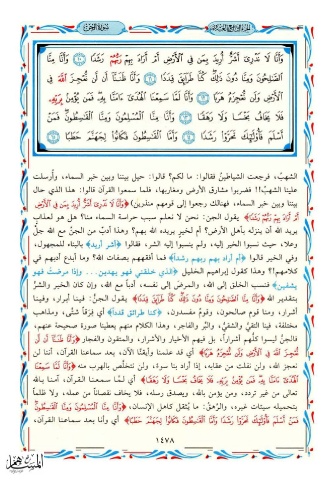 سورة الجن
وَأَنَّا لَا نَدْرِىٓ أَشَرٌّ أُرِيدَ بِمَن فِى ٱلْأَرْضِ أَمْ أَرَادَ بِهِمْ رَبُّهُمْ رَشَدًا ﴿١٠﴾ وَأَنَّا مِنَّا
ٱلصَّـٰلِحُونَ وَمِنَّا دُونَ ذَٰلِكَ كُنَّا طَرَآئِقَ قِدَدًا ﴿١١﴾ وَأَنَّا ظَنَنَّآ أَن لَّن نُّعْجِزَ ٱللَّهَ فِى
ٱلْأَرْضِ وَلَن نُّعْجِزَهُۥ هَرَبًا ﴿١٢﴾ وَأَنَّا لَمَّا سَمِعْنَا ٱلْهُدَىٰٓ ءَامَنَّا بِهِۦ فَمَن يُؤْمِنۢ بِرَبِّهِۦ
فَلَا يَخَافُ بَخْسًا وَلَا رَهَقًا ﴿١٣﴾ وَأَنَّا مِنَّا ٱلْمُسْلِمُونَ وَمِنَّا ٱلْقَـٰسِطُونَ فَمَنْ
أَسْلَمَ فَأُو۟لَـٰٓئِكَ تَحَرَّوْا۟ رَشَدًا ﴿١٤﴾ وَأَمَّا ٱلْقَـٰسِطُونَ فَكَانُوا۟ لِجَهَنَّمَ حَطَبًا ﴿١٥﴾
الشهبُ، فرجعت الشياطينُ فقالوا: ما لكم؟ قالوا: حيل بيننا وبين خبر السماء، وأرسلت
علينا الشهبُ!! فضربوا مشارق الأرض ومغاربها، فلما سمعوا القرآن قالوا: هذا الذي حال
بيننا وبين خبر السماء، فهنالك رجعوا إلى قومهم منذرين) ﴿وَأَنَّا لَا نَدْرِىٓ أَشَرٌّ أُرِيدَ بِمَن فِى ٱلْأَرْضِ
أَمْ أَرَادَ بِهِمْ رَبُّهُمْ رَشَدًا﴾ يقول الجن: نحن لا نعلم سبب حراسة السماء منا؟ هل هو لعذابٍ
يريد الله أن ينزله بأهل الأرض؟ أم لخيرٍ يريده الله بهم؟ وهذا أدبٌ من الجنّ مع الله جلّ
وعلا، حيث نسبوا الخير إليه، ولم ينسبوا إليه الشر، فقالوا ﴿أشر أريد﴾ بالبناء للمجهول،
وفي الخير قالوا ﴿أم أراد بهم ربهم رشداً﴾ فما أفقههم بصفات الله؟ وما أبدع أدبهم في
كلامهم!؟ وهذا كقول إبراهيم الخليل ﴿الذي خلقني فهو يهدين... وإذا مرضت فهو
يشفين﴾ فنسب الخلق إلى الله، والمرض إلى نفسه، أدباً مع الله، وإن كان الخيرُ والشرُّ
بتقدير الله ﴿وَأَنَّا مِنَّا ٱلصَّـٰلِحُونَ وَمِنَّا دُونَ ذَٰلِكَ كُنَّا طَرَآئِقَ قِدَدًا﴾ يقول الجنُّ: فينا أبرار، وفينا
أشرار، ومنا قوم صالحون، وقومٌ مفسدون، ﴿كنا طرائق قدداً﴾ أي فِرَقاً شتَّى، ومذاهب
مختلفة، فينا التقيُّ والشقيُّ، والبَرُّ والفاجر، وهذا الكلام منهم يعطينا صورة صحيحة عنهم،
فالجنُّ ليسوا كلُّهم أشراراً، بل فيهم الأخيار والأشرار، والمتقون والفجار ﴿وَأَنَّا ظَنَنَّآ أَن لَّن
نُّعْجِزَ ٱللَّهَ فِى ٱلْأَرْضِ وَلَن نُّعْجِزَهُۥ هَرَبًا﴾ أي قد علمنا وأيقنَّا الآن، بعد سماعنا القرآن، أننا لن
نعجز الله، ولن نفلت من عقابه، إذا أراد بنا سوء، ولن نتخلَّص بالهرب منه ﴿وَأَنَّا لَمَّا سَمِعْنَا
ٱلْهُدَىٰٓ ءَامَنَّا بِهِۦ فَمَن يُؤْمِنۢ بِرَبِّهِۦ فَلَا يَخَافُ بَخْسًا وَلَا رَهَقًا﴾ أي لمَّا سمعنا القرآن، آمنا بالله
تعالى من غير تردد، ومن يؤمن بالله، ويصدق رسله، فلا يخاف نقصاناً من عمله، ولا ظلماً
بتحميله سيئات غيره، والرَّهَقُ: ما يُثقل كاهل الإنسان، ﴿وَأَنَّا مِنَّا ٱلْمُسْلِمُونَ وَمِنَّا ٱلْقَـٰسِطُونَ
فَمَنْ أَسْلَمَ فَأُو۟لَـٰٓئِكَ تَحَرَّوْا۟ رَشَدًا وَأَمَّا ٱلْقَـٰسِطُونَ فَكَانُوا۟ لِجَهَنَّمَ حَطَبًا﴾ أي وأنا بعد سماعنا القرآن،
١٤٧٨